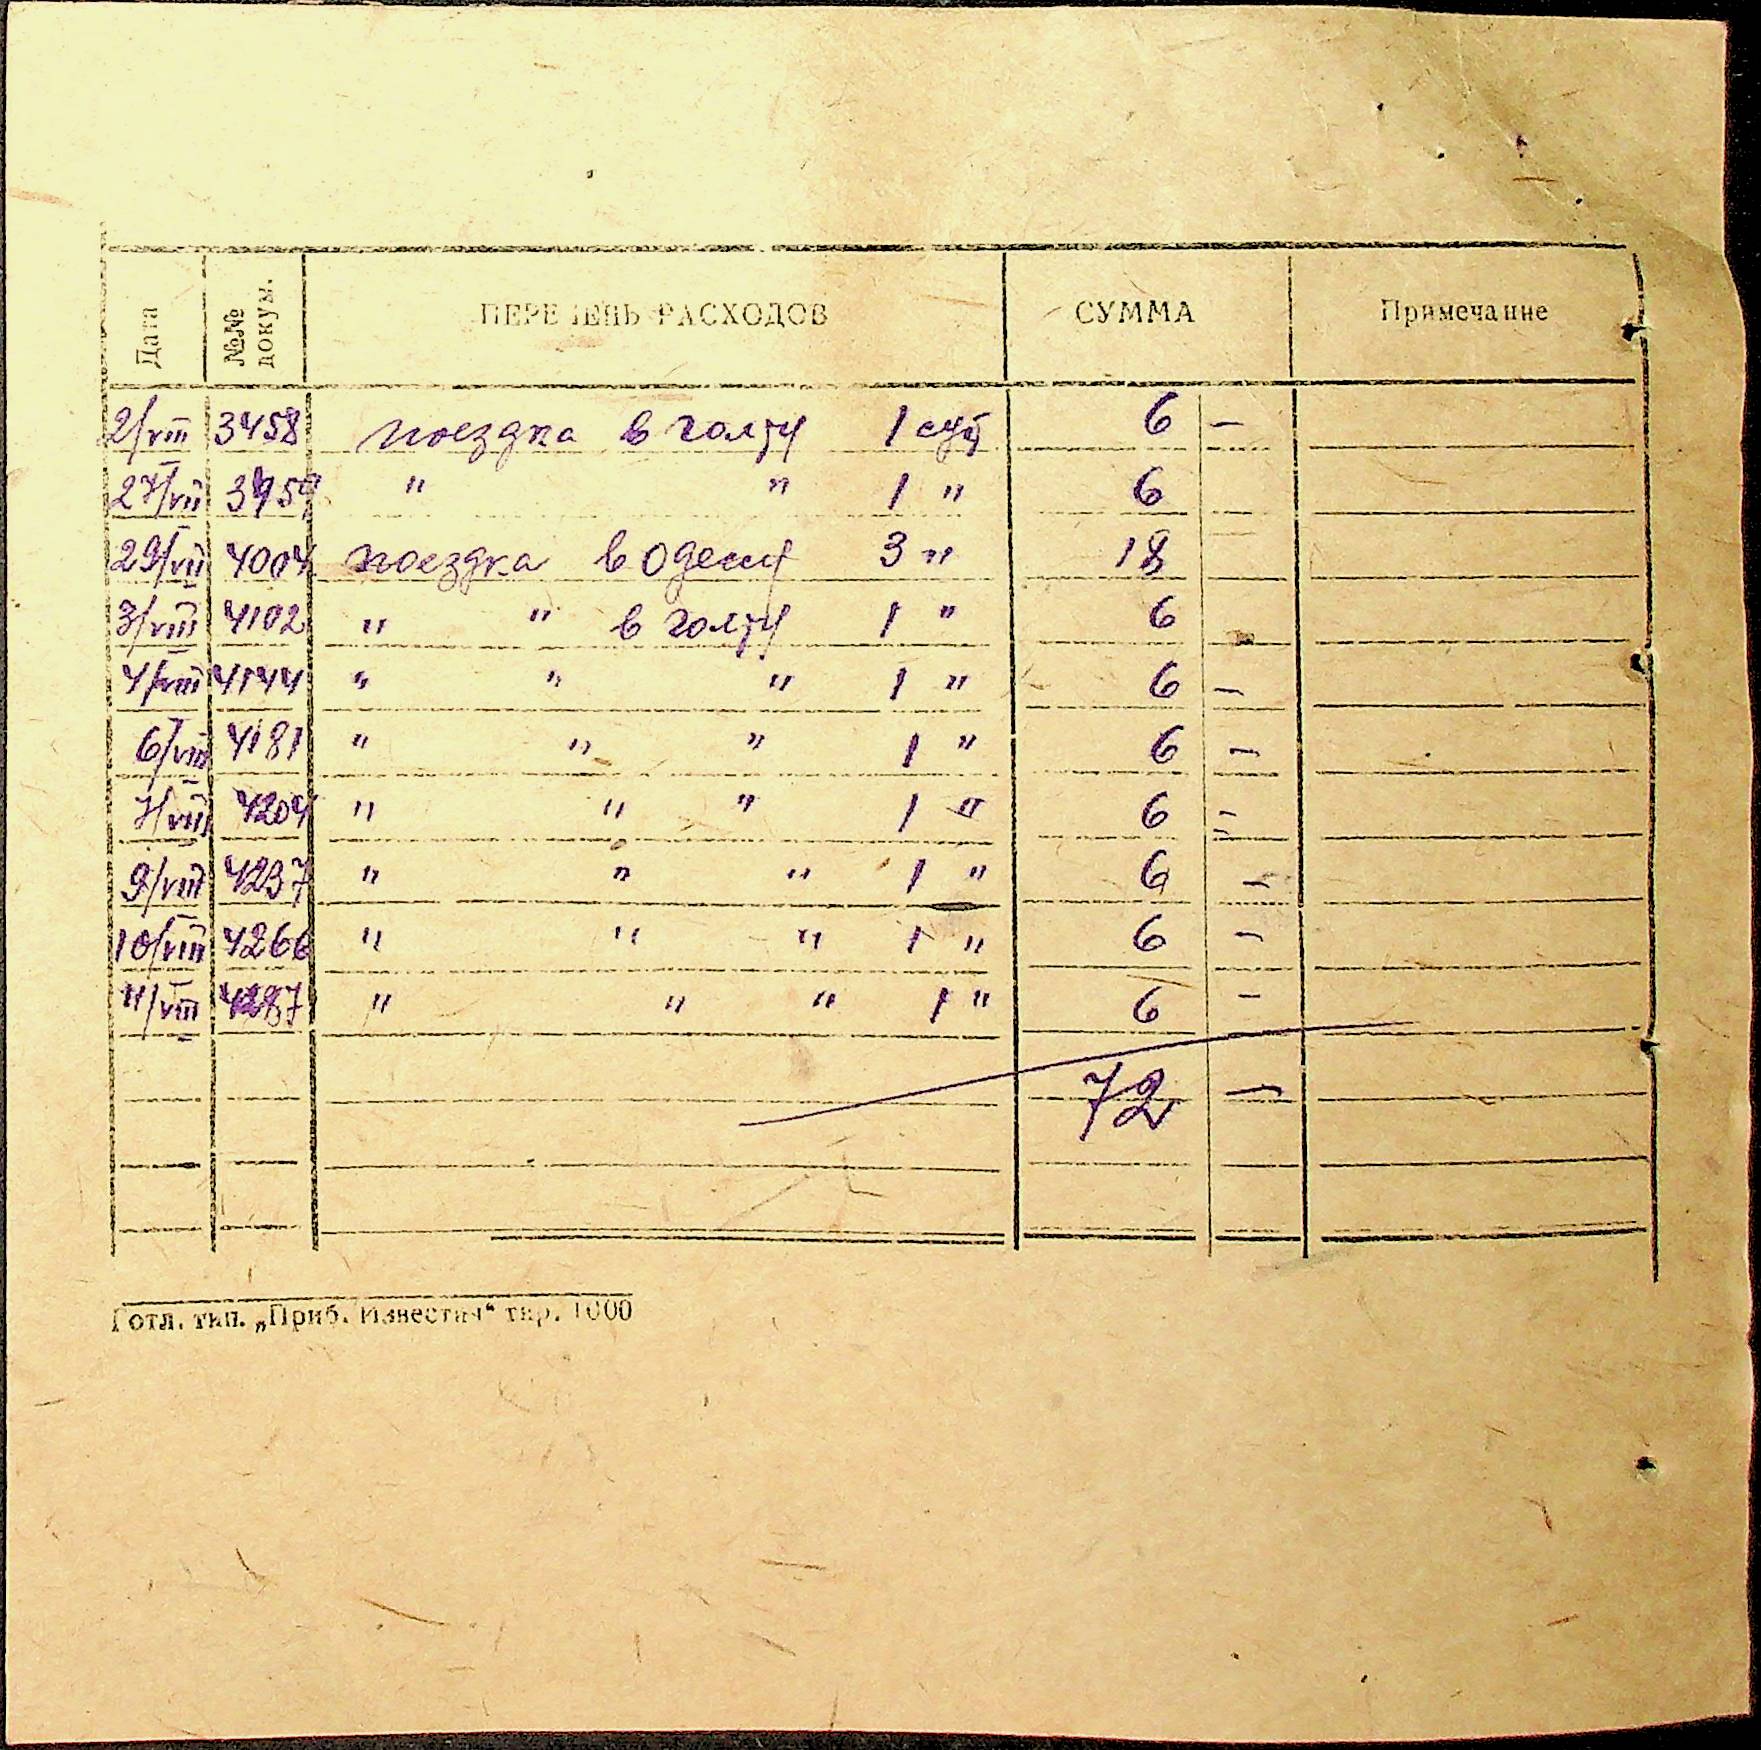 Дата №№ докум. ПЕРЕЧЕНЬ РАСХОДОВ СУММА Примечание
2/VIII 3458 поездка в голту 1 сут 6 —
27/VII 3959 " " 1 " 6
29/VII 4004 поездка в Одессу 3 " 18
3/VIII 4102 " " в голту 1 " 6
4/VIII 4144 " " " 1 " 6 —
6/VIII 4181 " " " 1 " 6 —
7/VIII 4204 " " " 1 " 6 —
9/VIII 4237 " " " 1 " 6 —
10/VIII 4266 " " " 1 " 6 —
11/VIII 4287 " " " 1 " 6 —
72 —
Готл. тип. „Приб. Известия“ тир. 1000